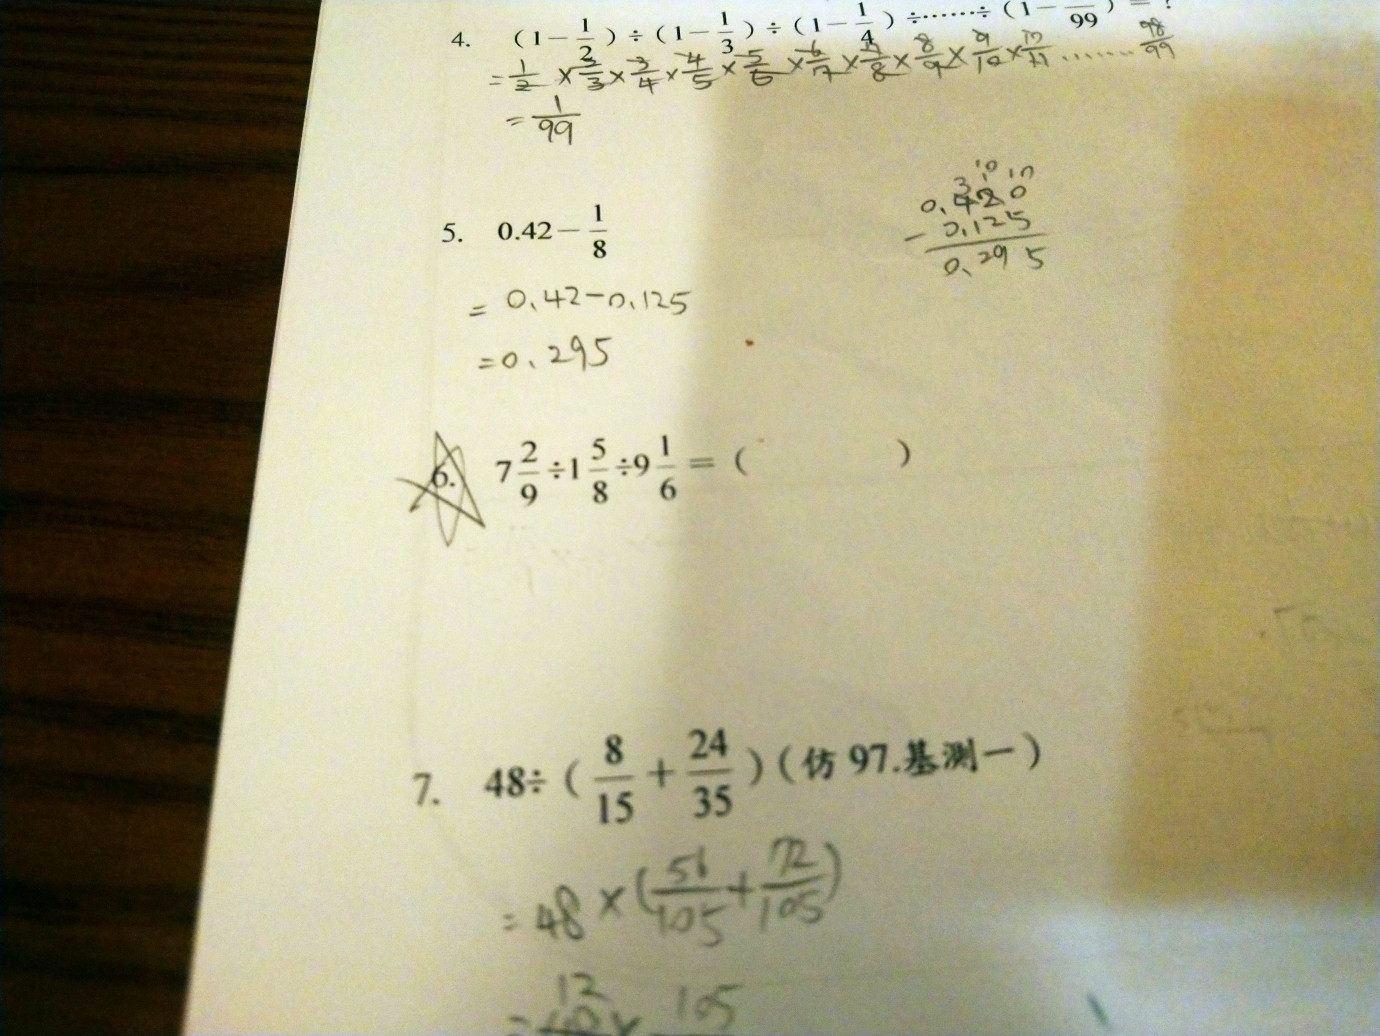 4. (1－1/2)÷(1－1/3)÷(1－1/4)÷……÷(1－1/99)＝？
=1/2×2/3×3/4×4/5×5/6×6/7×7/8×8/9×9/10×10/11……98/99
=1/99
5. 0.42－1/8
=0.42-0.125
=0.295
3 10 10
0.420
-0.125
0.295
6. 7 2/9÷1 5/8÷9 1/6＝( )
7. 48÷(8/15＋24/35)(仿97.基測一)
=48×(56/105+72/105)
12 105